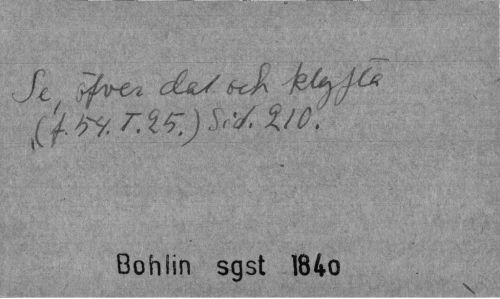 Se, öfver dal och klyfta
(f. 54. T. 25.) Sid. 210.
Bohlin sgst 1840